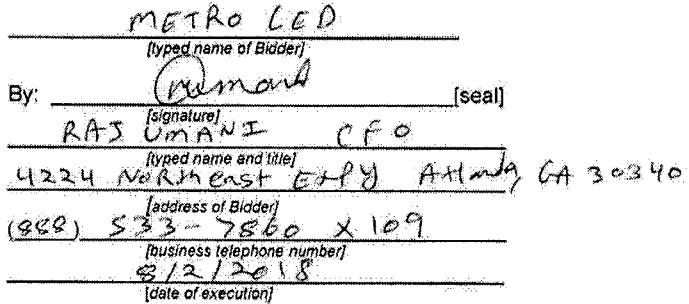 METRO LED
[typed name of Bidder]
By: [seal]
[signature]
RAJ UMANI CFO
[typed name and title]
4224 Northeast Expy Atlanta, GA 30340
[address of Bidder]
(888) 533-7860 X 109
[business telephone number]
8/2/2018
[date of execution]